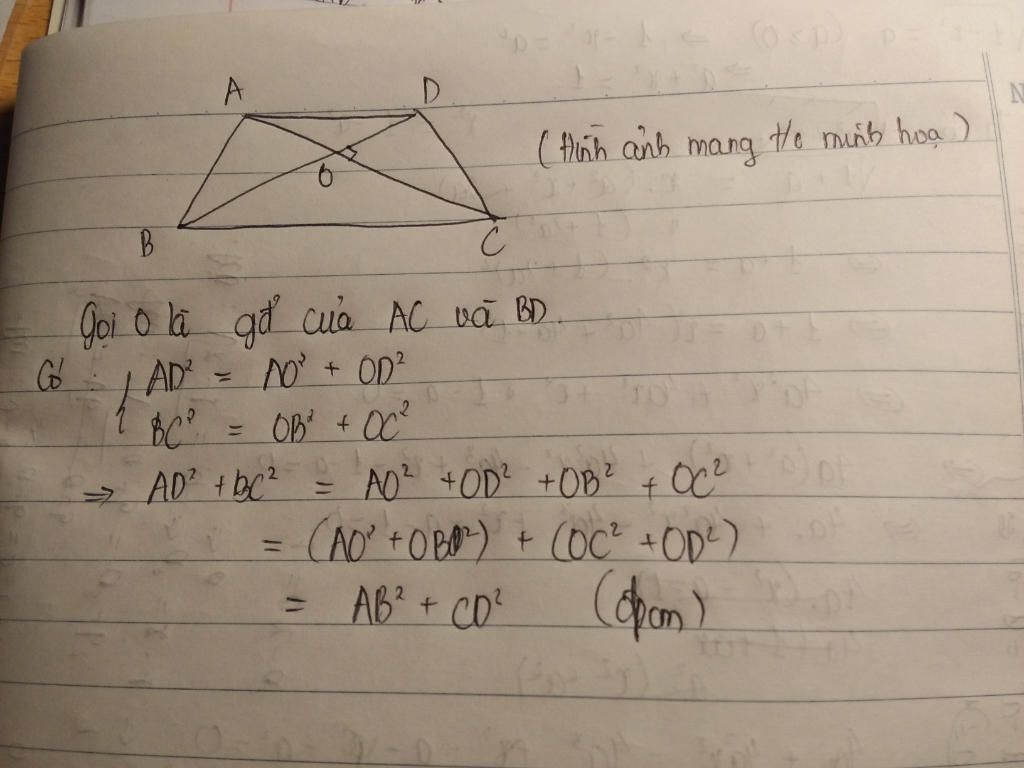 A D
(Hình ảnh mang t/c minh hoạ)
O
B C
Gọi O là gđ của AC và BD
Có { AD² = AO² + OD²
BC² = OB² + OC²
⇒ AD² + BC² = AO² + OD² + OB² + OC²
= (AO² + OB²) + (OC² + OD²)
= AB² + CD² (đpcm)